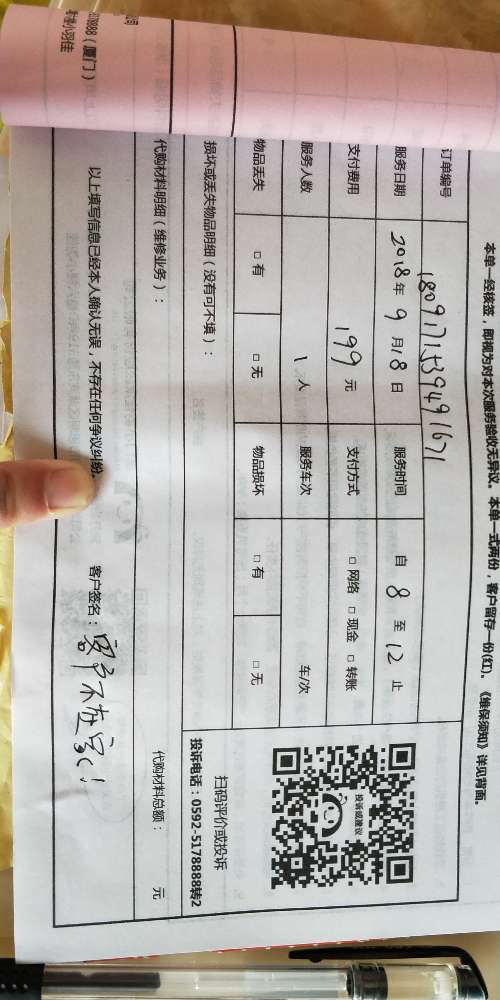 本单一经核签，即视为对本次服务验收无异议。本单一式两份，客户留存一份(红)。《维保须知》详见背面。
订单编号 1809171539491671
服务日期 2018年 9月18日 服务时间 自 8 至 12 止
支付费用 199 元 支付方式 □ 网络 □ 现金 □ 转账
服务人数 1 人 服务车次 车/次
物品丢失 □ 有 □ 无 物品损坏 □ 有 □ 无
投诉或建议
扫码评价或投诉
投诉电话：0592-5178888转2
损坏或丢失物品明细（没有可不填）：
代购材料明细（维修业务）：
代购材料总额： 元
以上填写信息已经本人确认无误，不存在任何争议纠纷。 客户签名：客户不在家！
（厦门）